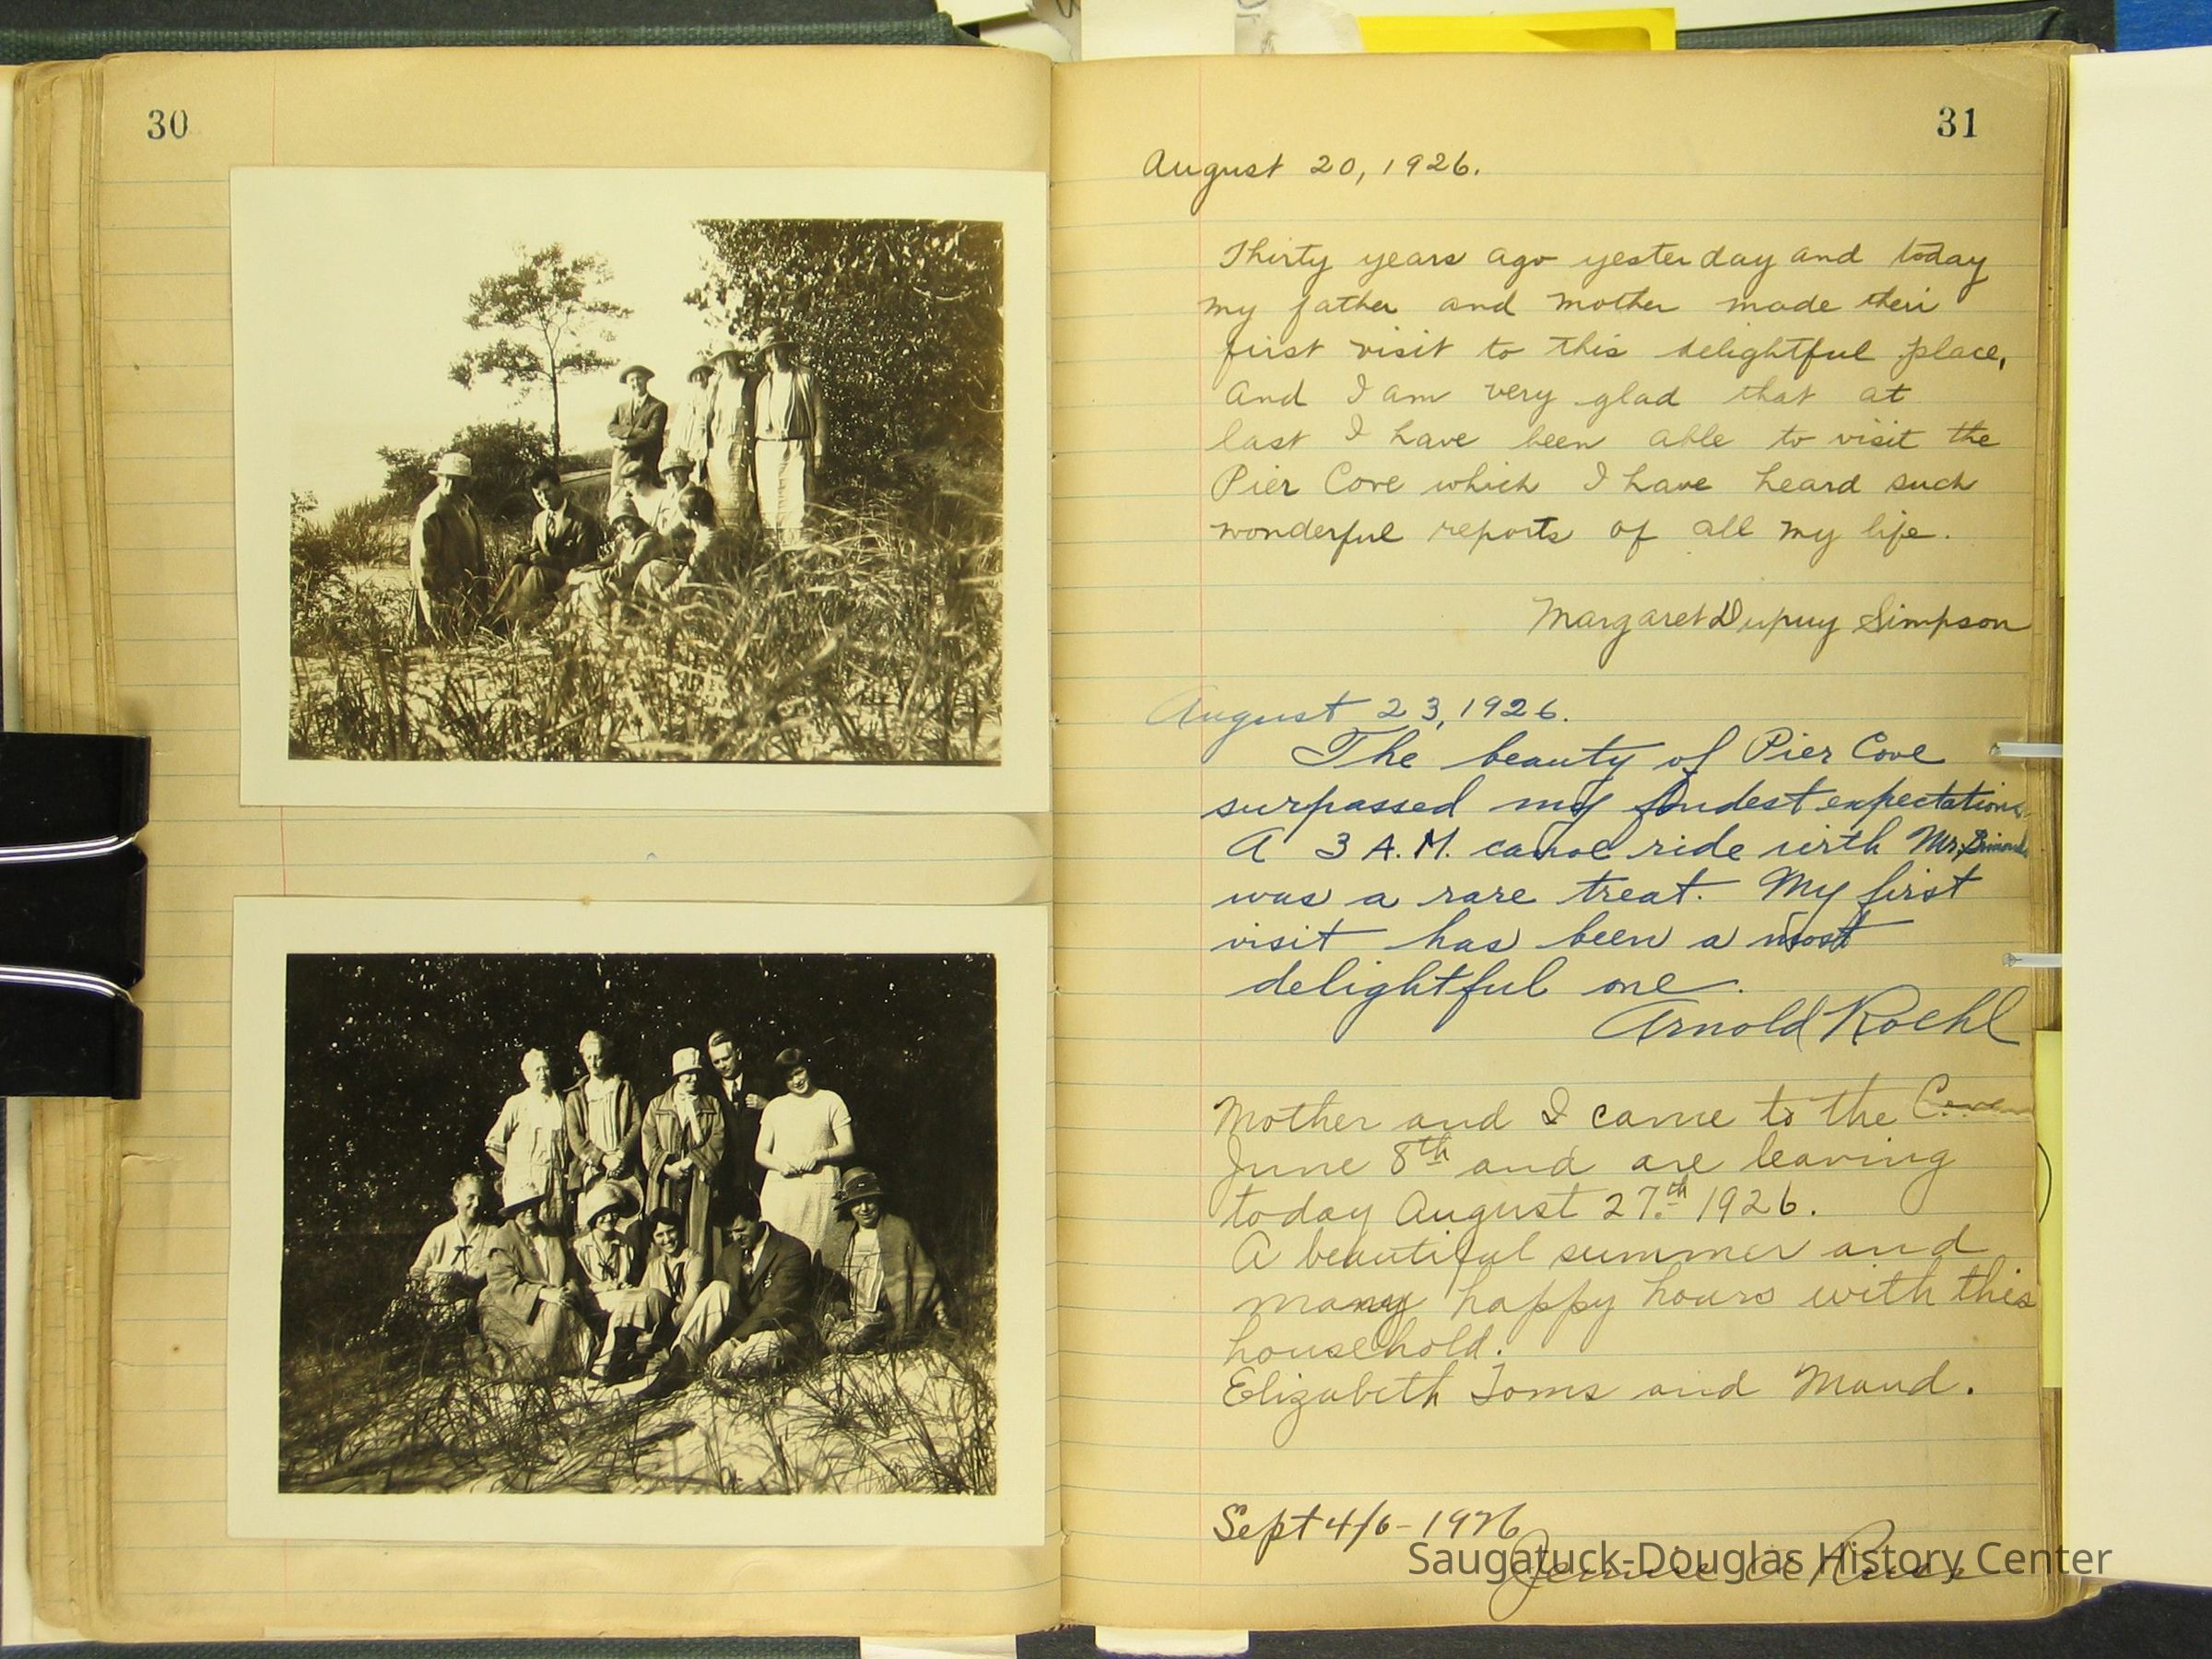 30
31
August 20, 1926.
Thirty years ago yesterday and today
my father and mother made their
first visit to this delightful place,
and I am very glad that at
last I have been able to visit the
Pier Cove which I have heard such
wonderful reports of all my life.
Margaret Dupuy Simpson
August 23, 1926.
The beauty of Pier Cove
surpassed my fondest expectations.
A 3 A.M. canoe ride with Mr. Simonds
was a rare treat. My first
visit has been a most
delightful one.
Arnold Roehl
Mother and I came to the Cove
June 8th and are leaving
today August 27th 1926.
A beautiful summer and
many happy hours with this
household.
Elizabeth Toms and Maud.
Sept 4/6 - 1926
Saugatuck-Douglas History Center